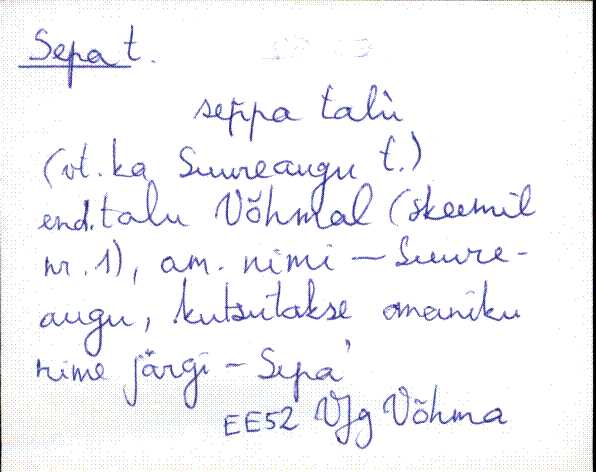 Sepa t.
seppa talù
(vt. ka Suureaugu t.)
end. talu Võhmal (skeemil
nr. 1), am. nimi – Suure-
augu, kutsutakse omaniku
nime järgi – Sepa'
EE52 VJg Võhma